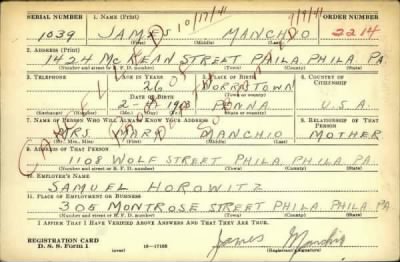 SERIAL NUMBER 1. NAME (Print) ORDER NUMBER
1039 JAMES MANCHIO 2214
10/17/41 9/9/41
(First) (Middle) (Last)
2. ADDRESS (Print)
1424 McKEAN STREET PHILA. PHILA. PA.
(Number and street or R. F. D. number) (Town) (County) (State)
3. TELEPHONE 4. AGE IN YEARS 5. PLACE OF BIRTH 6. COUNTRY OF CITIZENSHIP
26 NORRISTOWN
DATE OF BIRTH (Town or county)
PENNA U.S.A.
(Exchange) (Number) (Mo.) (Day) (Yr.) (State or country)
7. NAME OF PERSON WHO WILL ALWAYS KNOW YOUR ADDRESS 8. RELATIONSHIP OF THAT PERSON
MRS MARY MANCHIO MOTHER
(Mr., Mrs., Miss) (First) (Middle) (Last)
CANCELLED
9. ADDRESS OF THAT PERSON
1108 WOLF STREET PHILA. PHILA. PA.
(Number and street or R. F. D. number) (Town) (County) (State)
10. EMPLOYER'S NAME
SAMUEL HOROWITZ
11. PLACE OF EMPLOYMENT OR BUSINESS
305 MONTROSE STREET PHILA. PHILA. PA.
(Number and street or R. F. D. number) (Town) (County) (State)
I AFFIRM THAT I HAVE VERIFIED ABOVE ANSWERS AND THAT THEY ARE TRUE.
REGISTRATION CARD
D. S. S. Form 1 16-17105 James Manchio
(Registrant's signature)